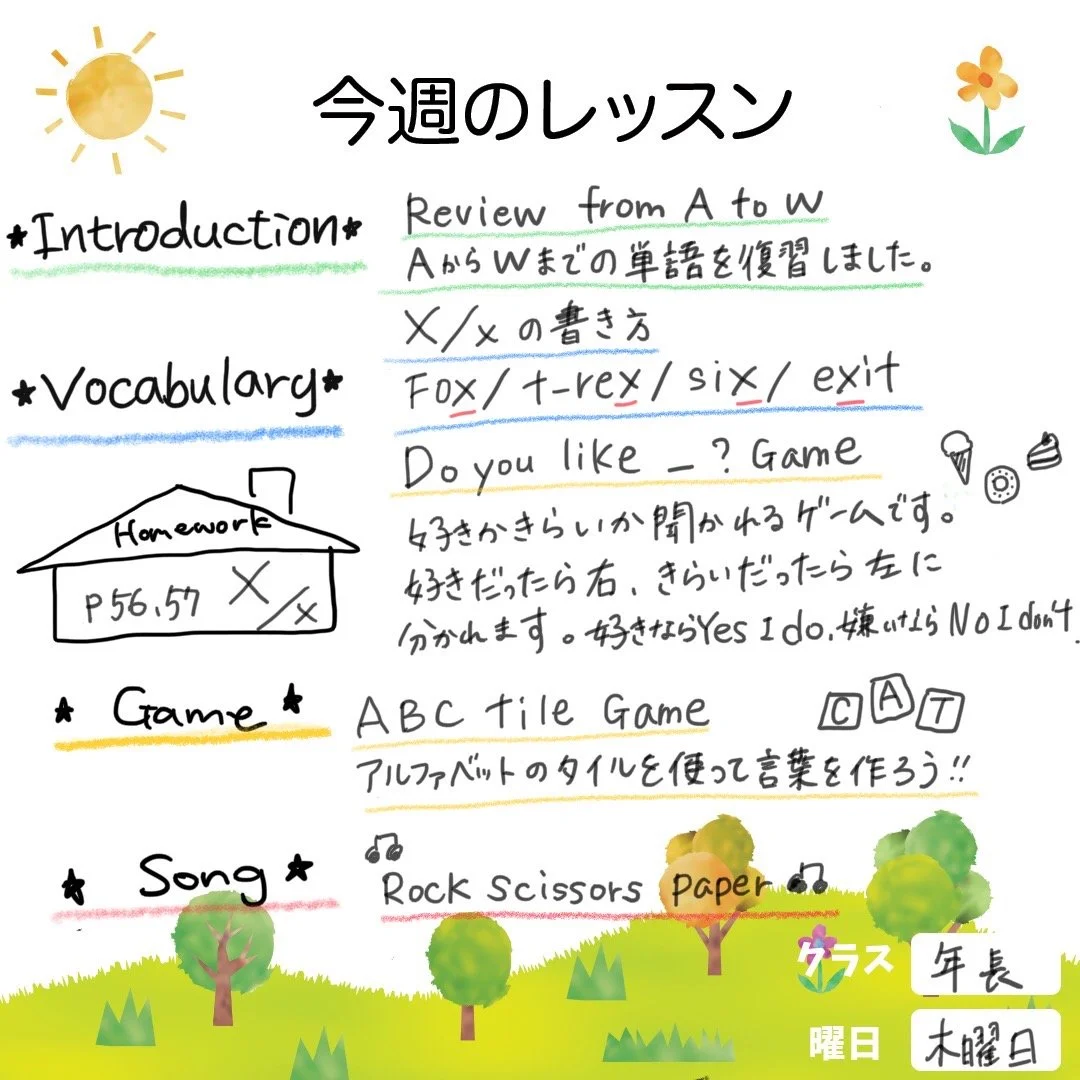 今週のレッスン
*Introduction*
Review from A to W
AからWまでの単語を復習しました。
X/x の書き方
*Vocabulary*
Fox/t-rex/six/exit
Do you like _ ? Game
好きかきらいか聞かれるゲームです。
好きだったら右、きらいだったら左に
分かれます。好きならYes I do、嫌いなら No I don't.
Homework
P56,57 X/x
* Game *
ABC tile Game
C A T
アルファベットのタイルを使って言葉を作ろう!!
* Song *
Rock scissors paper
クラス 年長
曜日 木曜日